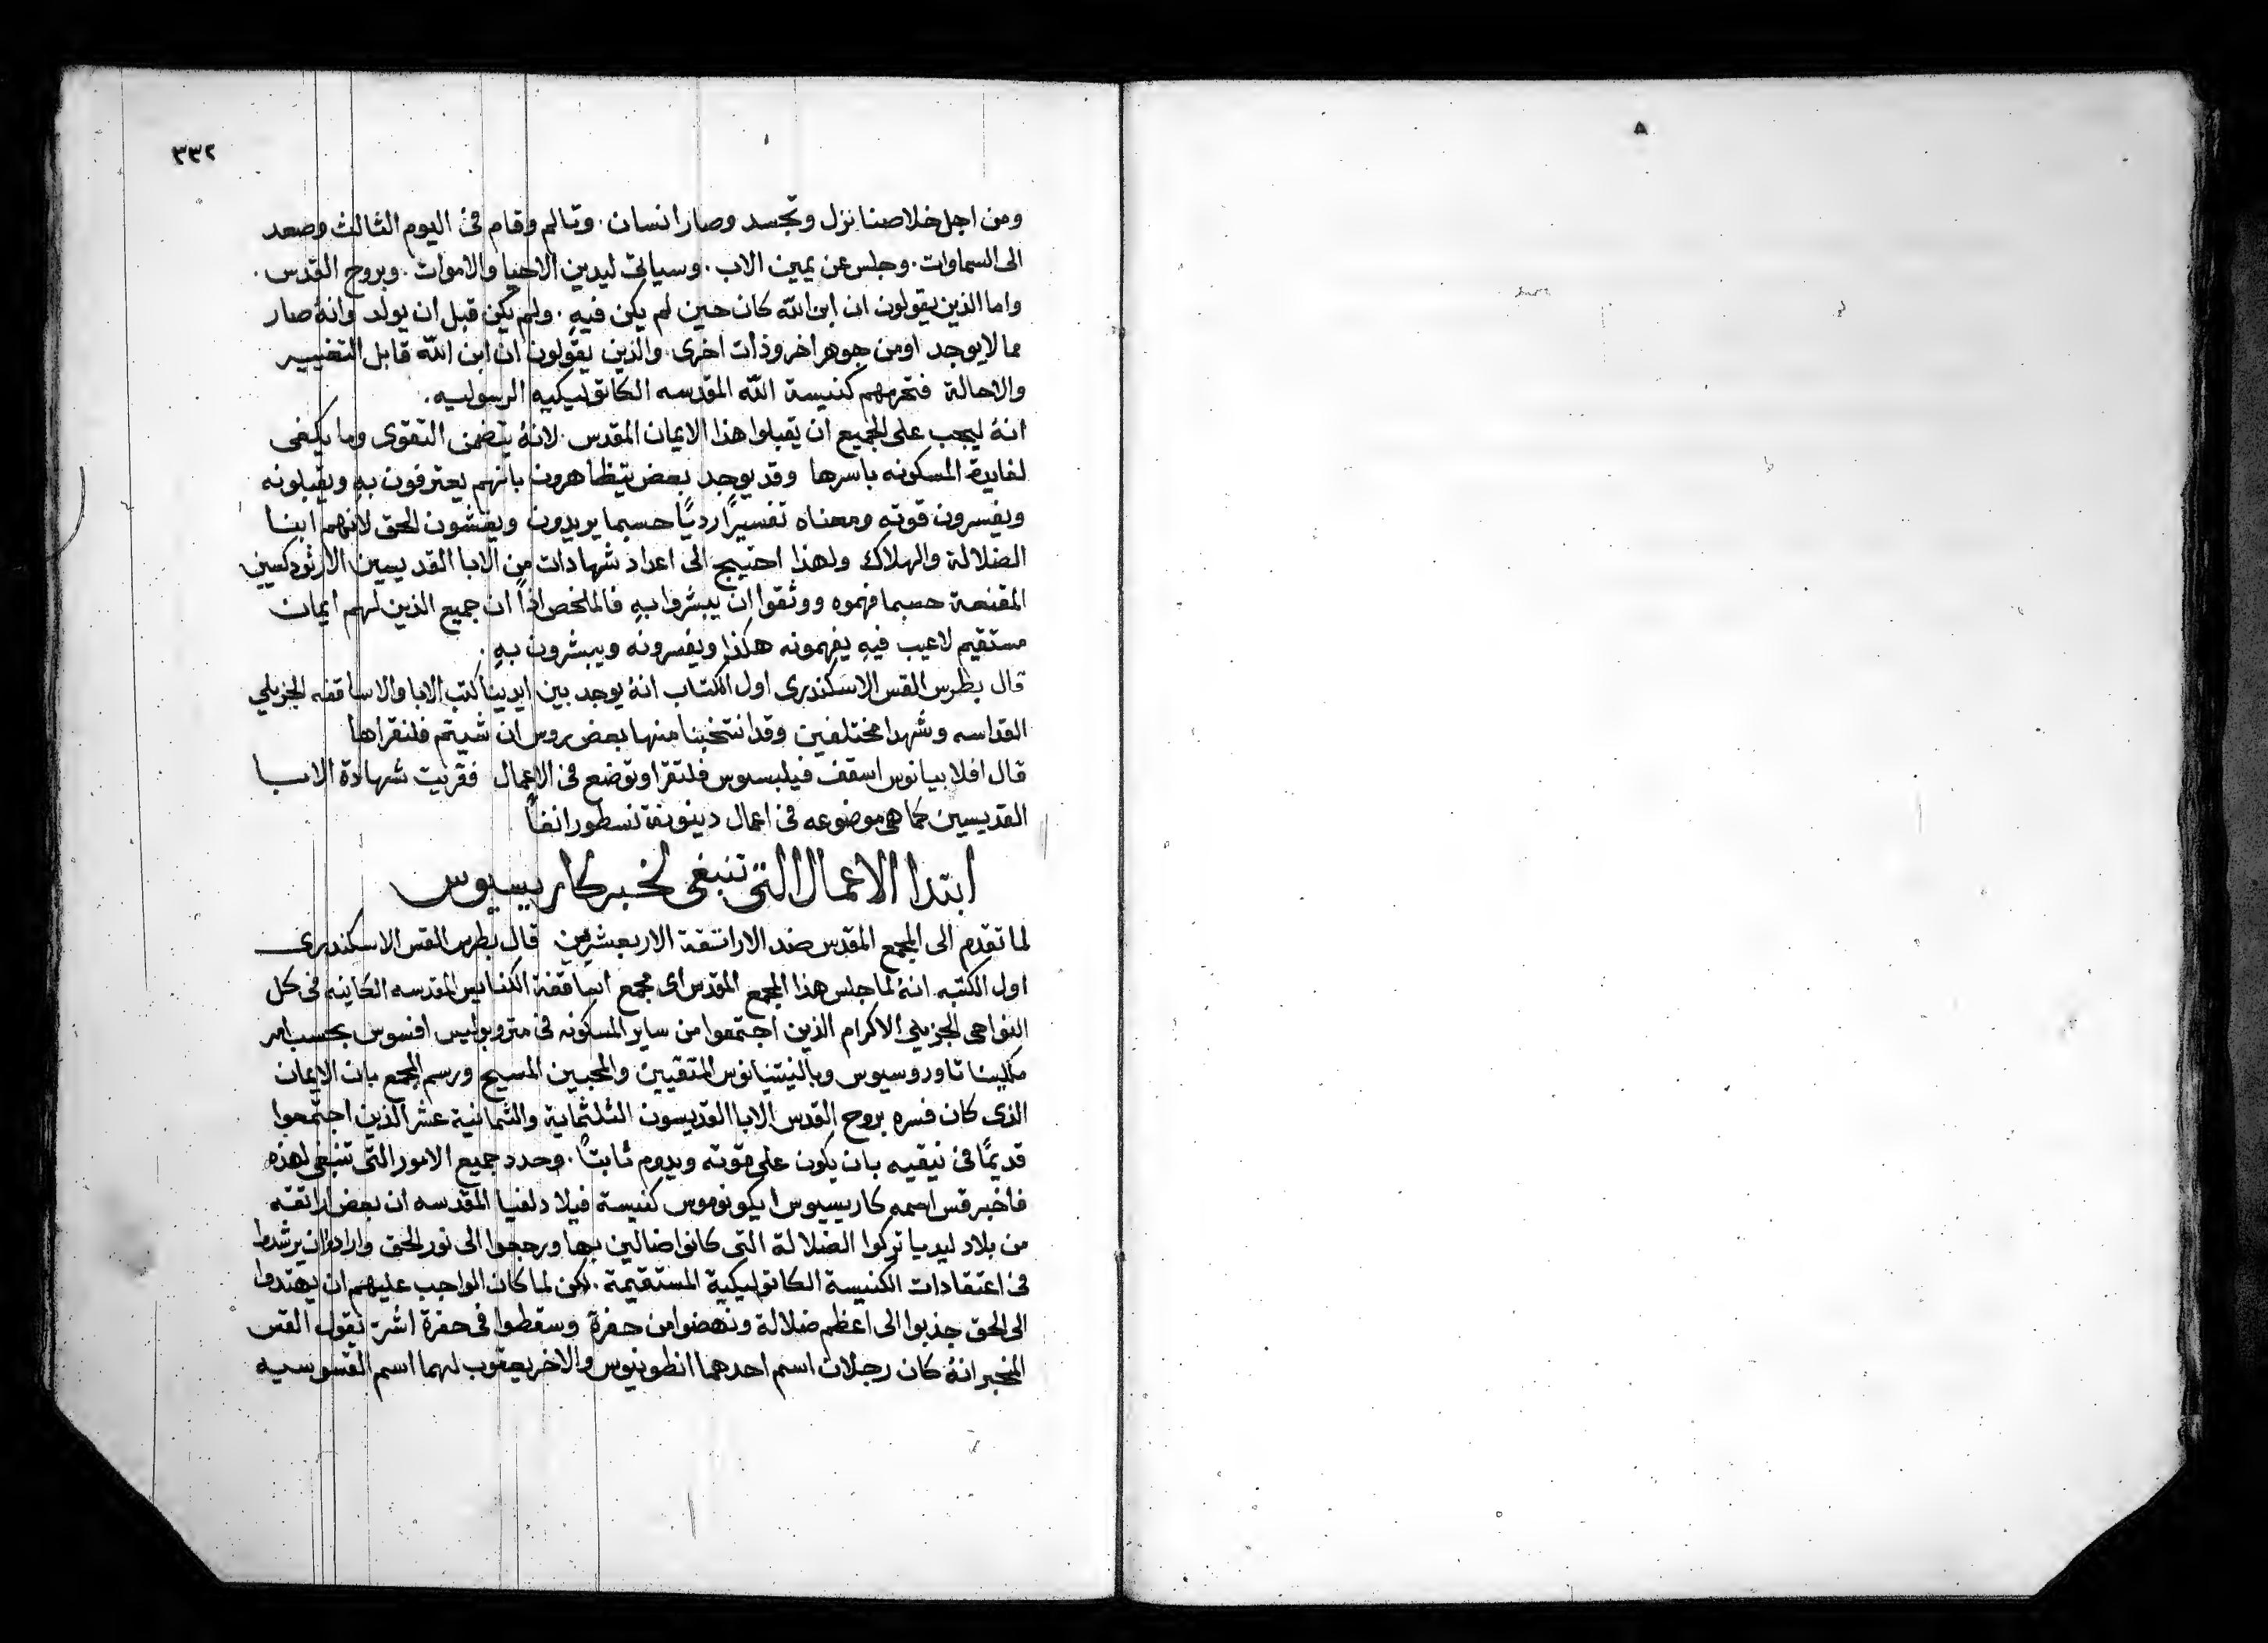 ٣٣٢
ومن اجل خلاصنا نزل وتجسد وصار انسان. وتالم وقام في اليوم الثالث وصعد
الى السماوات. وجلس عن يمين الاب. وسياتي ليدين الاحيا والاموات. وبروح القدس.
واما الذين يقولون ان ابن الله كان حين لم يكن فيه. ولم يكن قبل ان يولد وانه صار
مما لا يوجد اومن جوهر اخر وذات اخرى. والذين يقولون ان ابن الله قابل التغيير
والاحالة فتحرمهم كنيسة الله المقدسه الكاتوليكيه الرسوليه.
انه ليجب على الجميع ان يقبلوا هذا الايمان المقدس. لانه يتضمن التقوى وما يكفى
لفايدة المسكونه باسرها وقد يوجد بعض يتظاهرون بانهم يعترفون به ويقبلونه
ويفسرون قوته ومعناه تفسيرًا رديًا حسبما يريدون ويغشون الحق لانهم ابنا
الضلالة والهلاك ولهذا احتيج الى اعداد شهادات من الابا القديسين الارثودكسيين
المقنعة حسبما فهموه ووثقوا ان يبشروا به فالملخص اذًا ان جميع الذين لهم ايمان
مستقيم لاعيب فيه يفهمونه هكذا ويفسرونه ويبشرون به.
قال بطرس القس الاسكندرى اول الكتاب انه يوجد بين ايدينا كتب الابا والاساقفه الجزيلي
القداسه وشهدا مختلفين وقد انتخبنا منها بعض روس ان شيتم فلنقراها
قال افلابيانوس اسقف فيلبسوس فلتقرا وتوضع في الاعمال فقريت شهادة الابا
القديسين كما هي موضوعه في اعمال دينونة نسطور انفًا
ابتدا الاعمال التي تنبغى لخبر كاريسيوس
لما تقدم الى المجمع المقدس ضد الاراتقة الاربعشرين قال بطرس القس الاسكندرى
اول الكتبه انه لما جلس هذا المجمع المقدس اى مجمع اساقفة الكنايس المقدسه الكاينه فى كل
النواحى الجزيلي الاكرام الذين اجتمعوا من ساير المسكونه في متروبوليس افسوس بحسب امر
ملكينا تاوروسيوس وبالنيتنيانوس المتقيين والمحبين المسيح ورسم المجمع بان الايمان
الذى كان فسره بروح القدس الابا القديسون الثلثماية والثمانية عشر الذين اجتمعوا
قديمًا في نيقيه بان يكون على قوته ويدوم ثابتًا. وحدد جميع الامور التي تنبغى لهذه
فاخبر قس اسمه كاريسيوس ايكونوموس كنيسة فيلادلفيا المقدسه ان بعض اراتقه
من بلاد ليديا تركوا الضلالة التي كانوا ضالين بها ورجعوا الى نور الحق وارادوا ان يرشدوا
في اعتقادات الكنيسة الكاتوليكية المستقيمة. لكن لما كان الواجب عليهم ان يهتدوا
الى الحق جذبوا الى اعظم ضلالة ونهضوا من حفرة وسقطوا في حفرة اشر نقول القس
المخبر انه كان رجلان اسم احدهما انطونيوس والاخر يعقوب لهما اسم القسوسيه